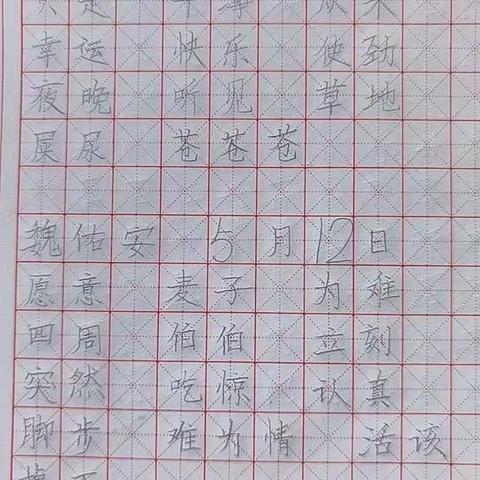 幸运 快乐 使劲
夜晚 听见 草地
屎尿 苍苍苍
魏佑安 5月12日
愿意 麦子 为难
四周 伯伯 立刻
突然 吃惊 认真
脚步 难为情 活该